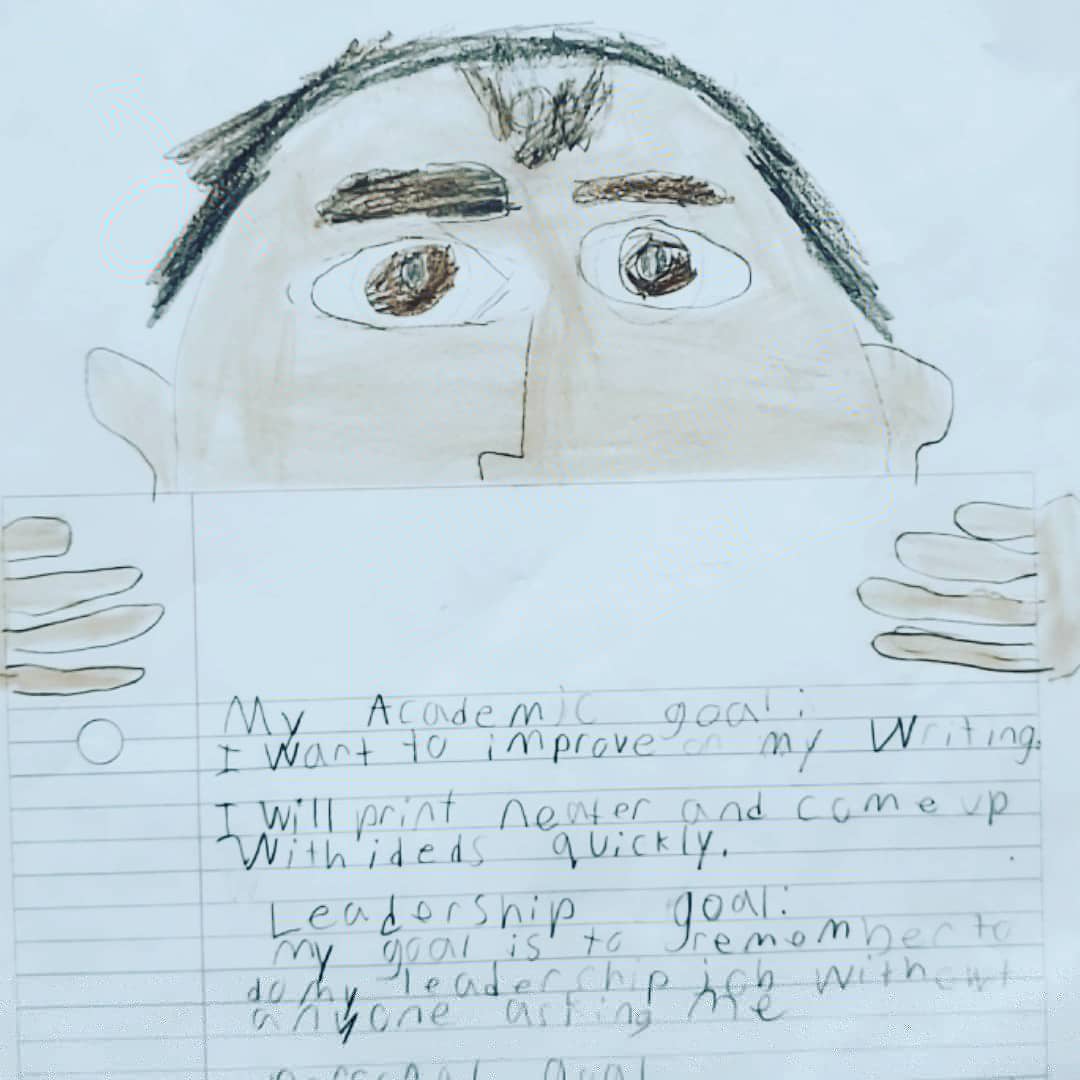 My Academic goal:
I Want to improve on my Writing.
I Will print neater and come up
With ideds quickly.
Leadership goal:
My goal is to remember to
do my leadership job without
anyone asking me
personal goal